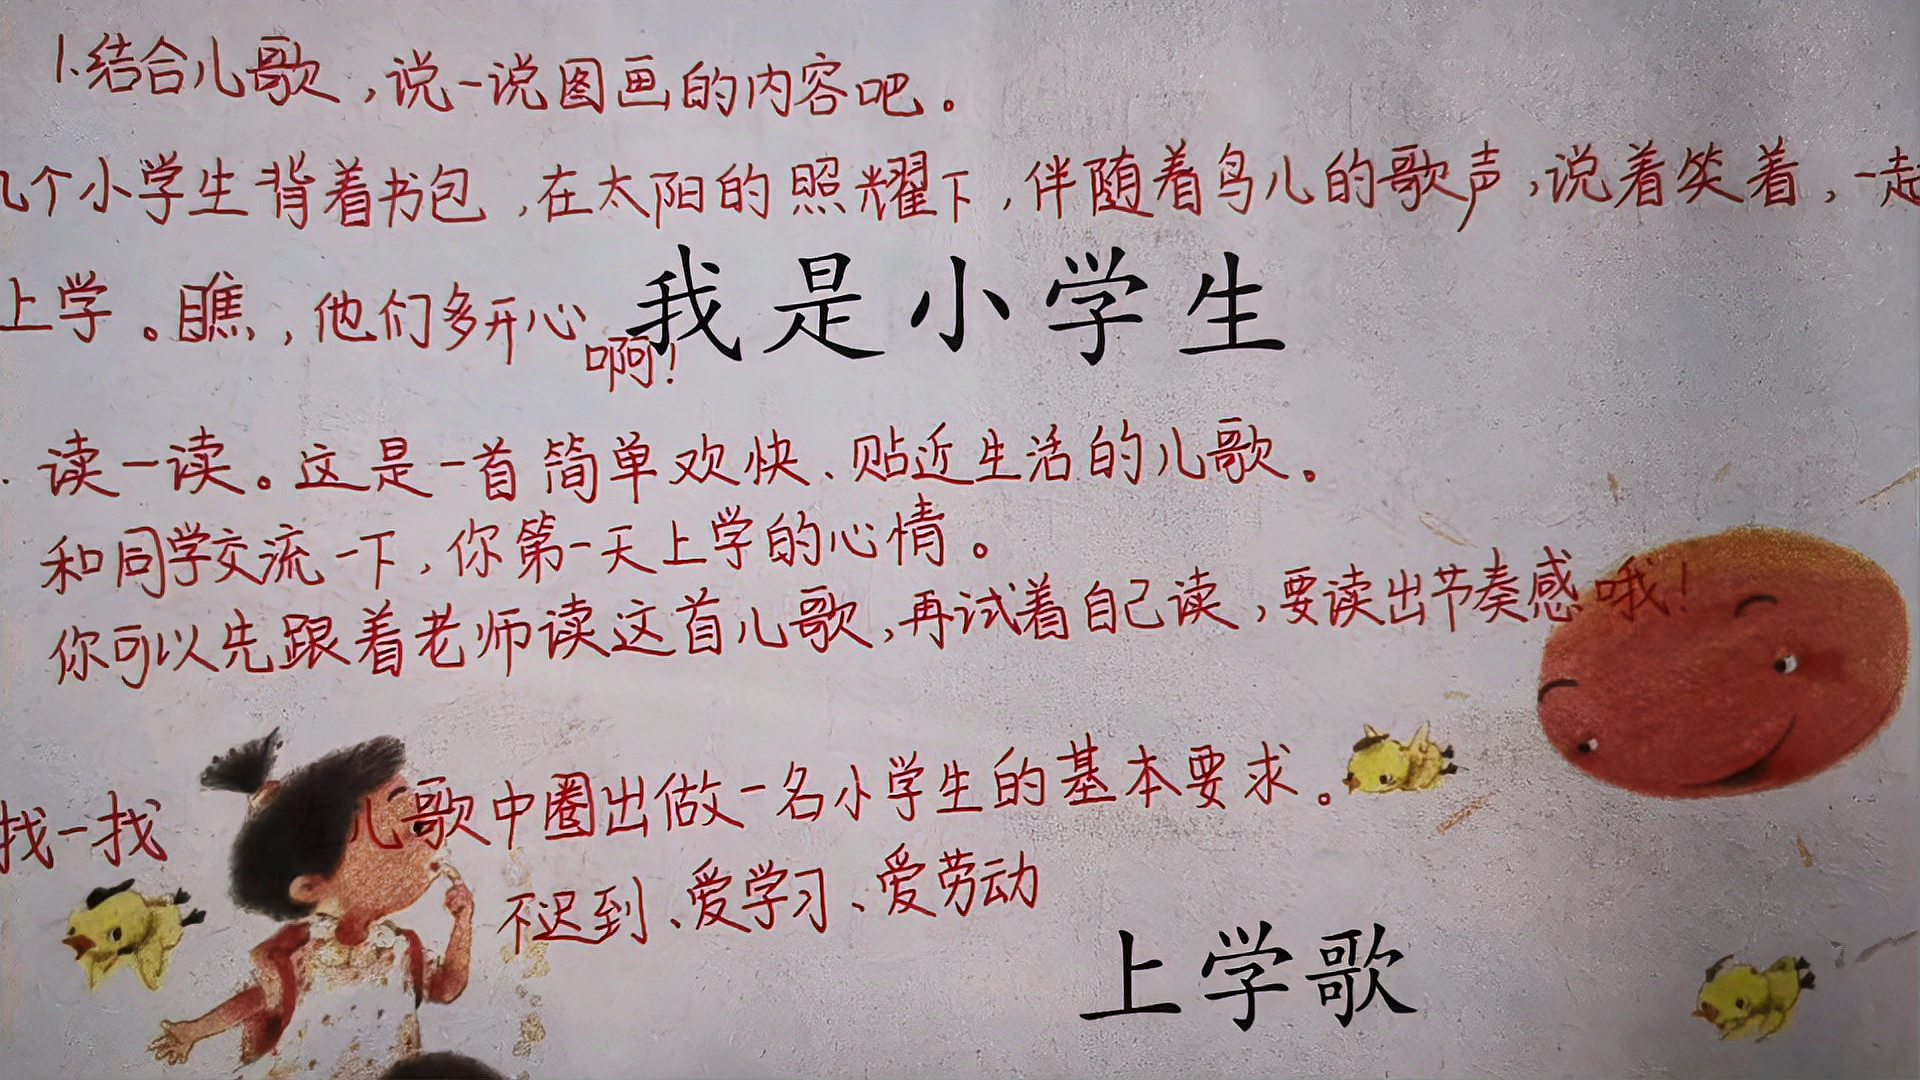 1.结合儿歌,说一说图画的内容吧。
几个小学生背着书包,在太阳的照耀下,伴随着鸟儿的歌声,说着笑着,一起
上学。瞧,他们多开心啊!
我是小学生
读一读。这是一首简单欢快、贴近生活的儿歌。
和同学交流一下,你第一天上学的心情。
你可以先跟着老师读这首儿歌,再试着自己读,要读出节奏感哦!
找一找 儿歌中圈出做一名小学生的基本要求。
不迟到、爱学习、爱劳动
上学歌